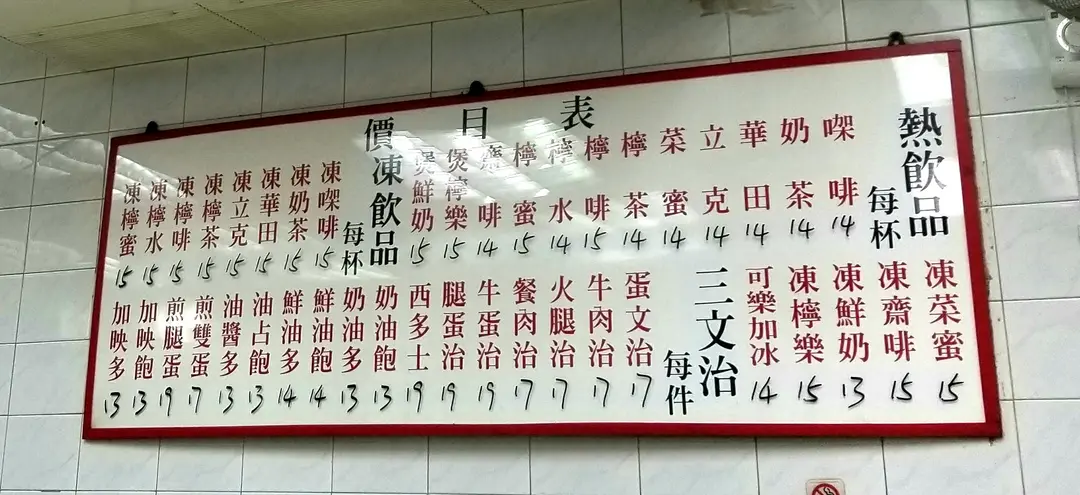 價目表
熱飲品
每杯
㗎啡 14
奶茶 14
華田 14
立克 14
菜蜜 14
檸茶 14
檸啡 15
檸水 14
檸蜜 15
齋啡 14
煲檸樂 15
煲鮮奶 15
凍飲品
每杯
凍㗎啡 15
凍奶茶 15
凍華田 15
凍立克 15
凍檸茶 15
凍檸啡 15
凍檸水 15
凍檸蜜 15
凍菜蜜 15
凍齋啡 15
凍鮮奶 13
凍檸樂 15
可樂加冰 14
三文治
每件
蛋文治 17
牛肉治 17
火腿治 17
餐肉治 17
牛蛋治 19
腿蛋治 19
西多士 19
奶油飽 13
奶油多 13
鮮油飽 14
鮮油多 14
油占飽 13
油醬多 13
煎雙蛋 17
煎腿蛋 19
加映飽 13
加映多 13